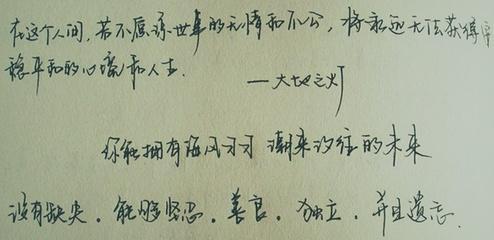 在这个人间,若不原谅世事的无情和不公,将永远无法获得安
稳平和的心境和人生.
—大地之灯
你能拥有海风习习 潮来汐往的未来
没有缺失。能够坚忍。善良。独立。并且遗忘.